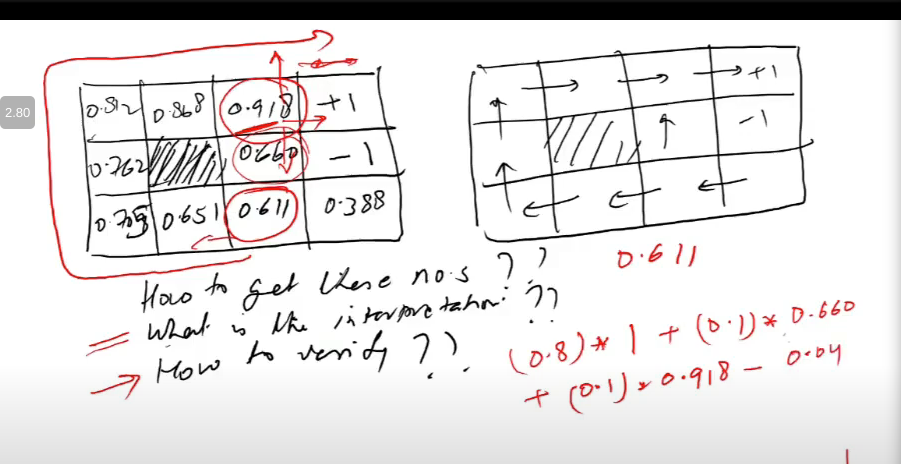 2.80
0.812 0.868 0.918 +1
0.762 0.660 -1
0.705 0.651 0.611 0.388
+1
-1
0.611
How to get these no.s ??
What is the interpretation ??
How to verify ??
(0.8) * 1 + (0.1) * 0.660
+ (0.1) * 0.918 - 0.04